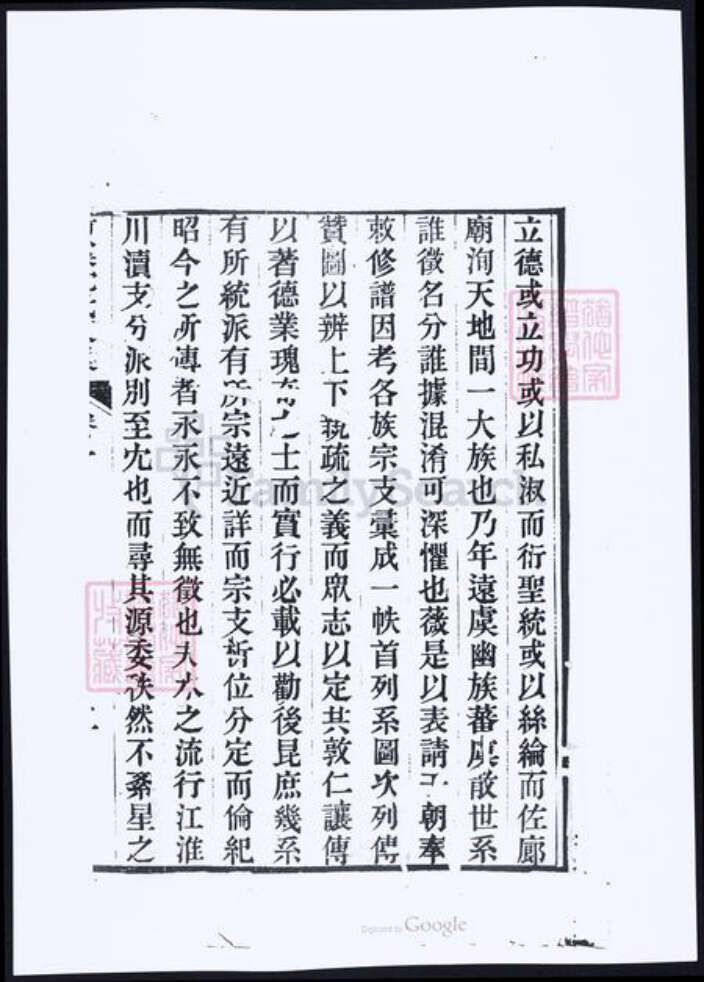 立德或立功或以私淑而衍聖統或以絲綸而佐廊
廟洵天地間一大族也乃年遠虞幽族蕃虞散世系
誰徵名分誰據混淆可深懼也薇是以表請于朝奉
敕修譜因考各族宗支彙成一帙首列系圖次列傳
贊圖以辨上下親疏之義而眾志以定其敦仁讓傳
以著德業瑰奇之士而實行必載以勸後昆庶幾系
有所統派有所宗遠近詳而宗支析位分定而倫紀
昭今之所傳者永永不致無徵也夫水之流行江淮
川瀆支分派別至尣也而尋其源委秩然不紊星之
FamilySearch
特藏
Digitized by Google